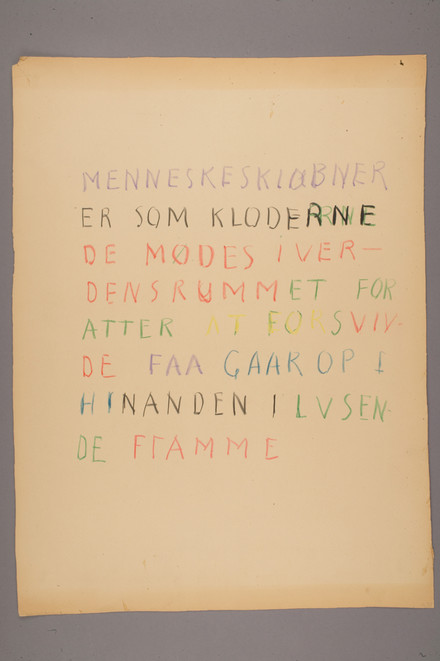 MENNESKESKIαBNER
ER SOM KLODERNE
DE MØDES I VER—
DENSRUMMET FOR
ATTER AT FORSVIV-
DE FAA GAAR OP I
HINANDEN I LVSEN-
DE FLAMME